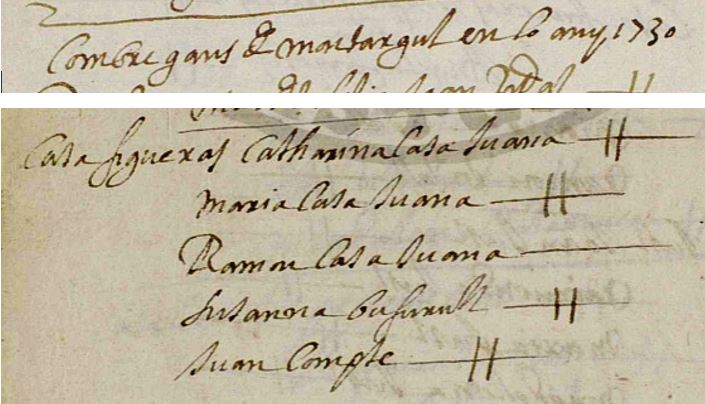 Combregans de Montargul en lo any 1730
Juan Vidal
Casa figueras Catharina Casa Juana
Maria Casa Juana
Ramon Casa Juana
Susanna
Juan Compte